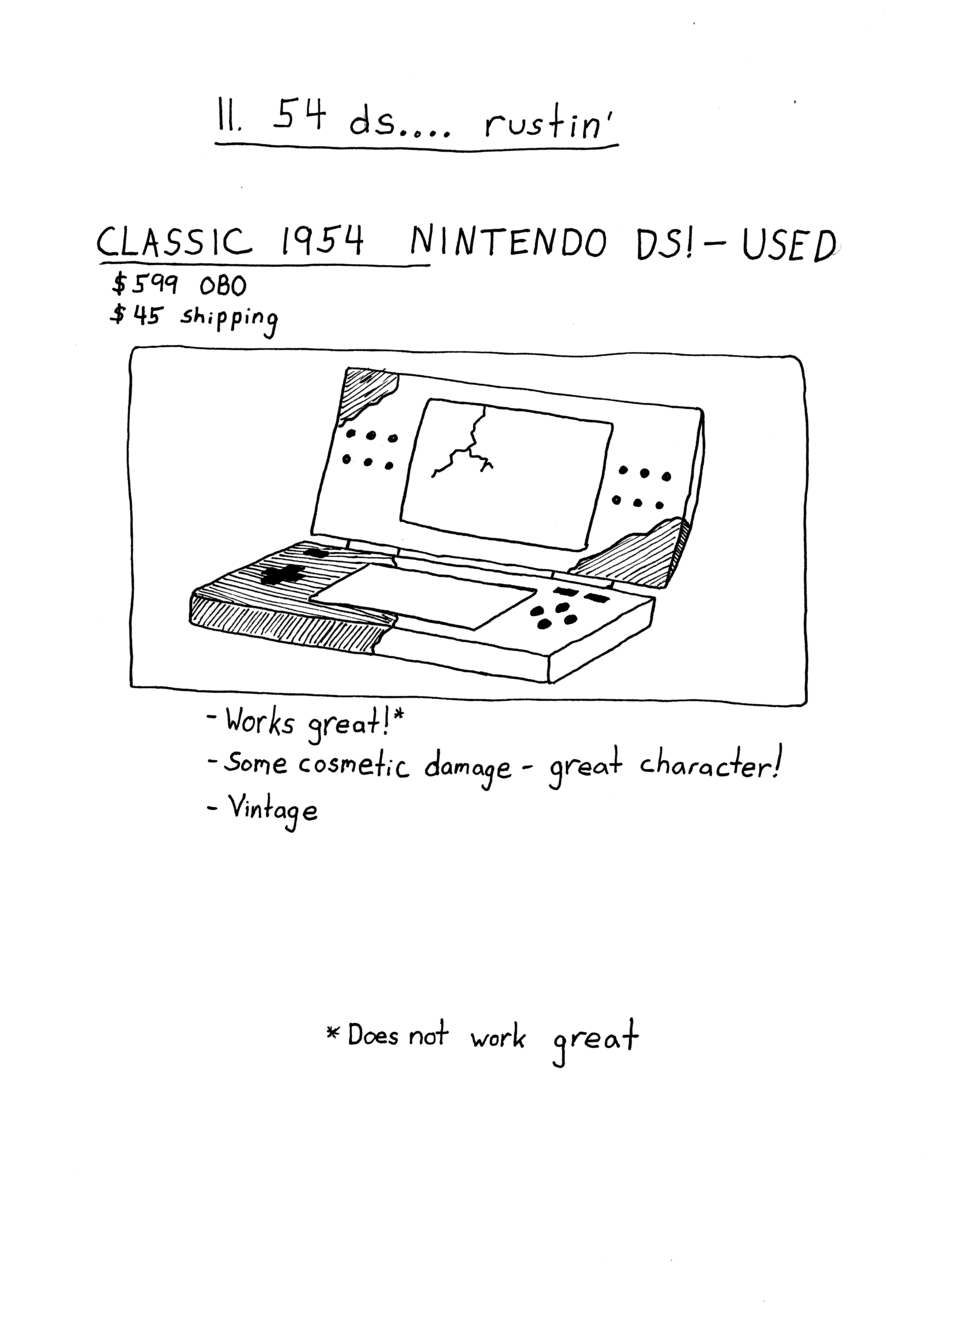 11. 54 ds.... rustin'
CLASSIC 1954 NINTENDO DS! - USED
$599 OBO
$45 shipping
- Works great!*
- Some cosmetic damage - great character!
- Vintage
* Does not work great